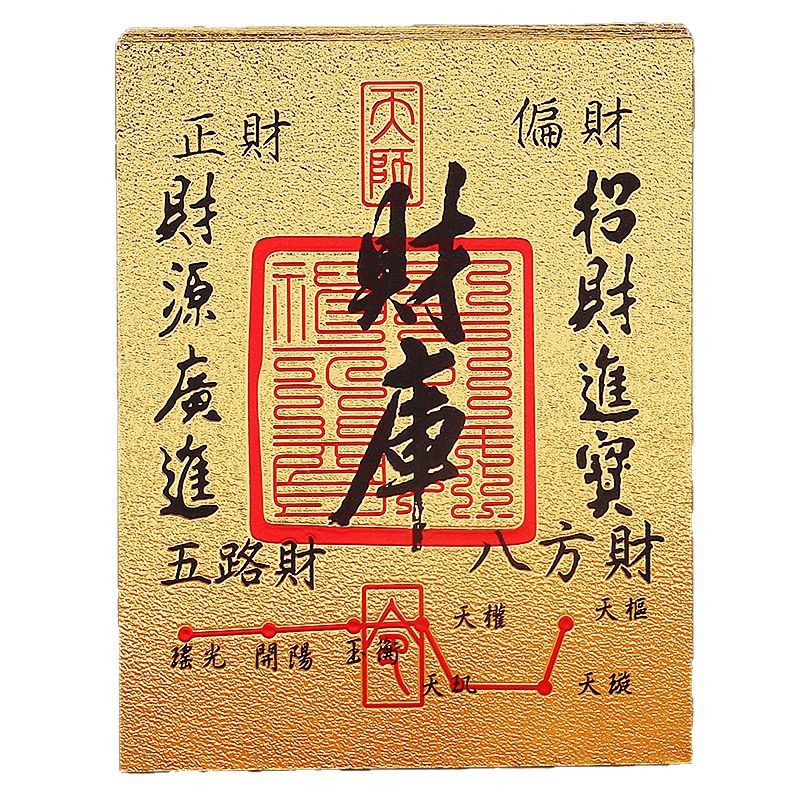 天師
正財
偏財
財庫
招財進寶
財源廣進
五路財
八方財
天權
天樞
瑤光
開陽
玉衡
天璣
天璇
命